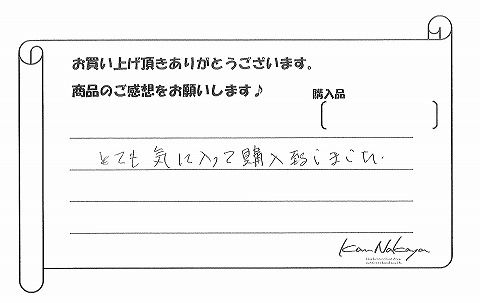 お買い上げ頂きありがとうございます。
商品のご感想をお願いします♪
購入品
とても気に入って購入致しました。
Kan Nakaya